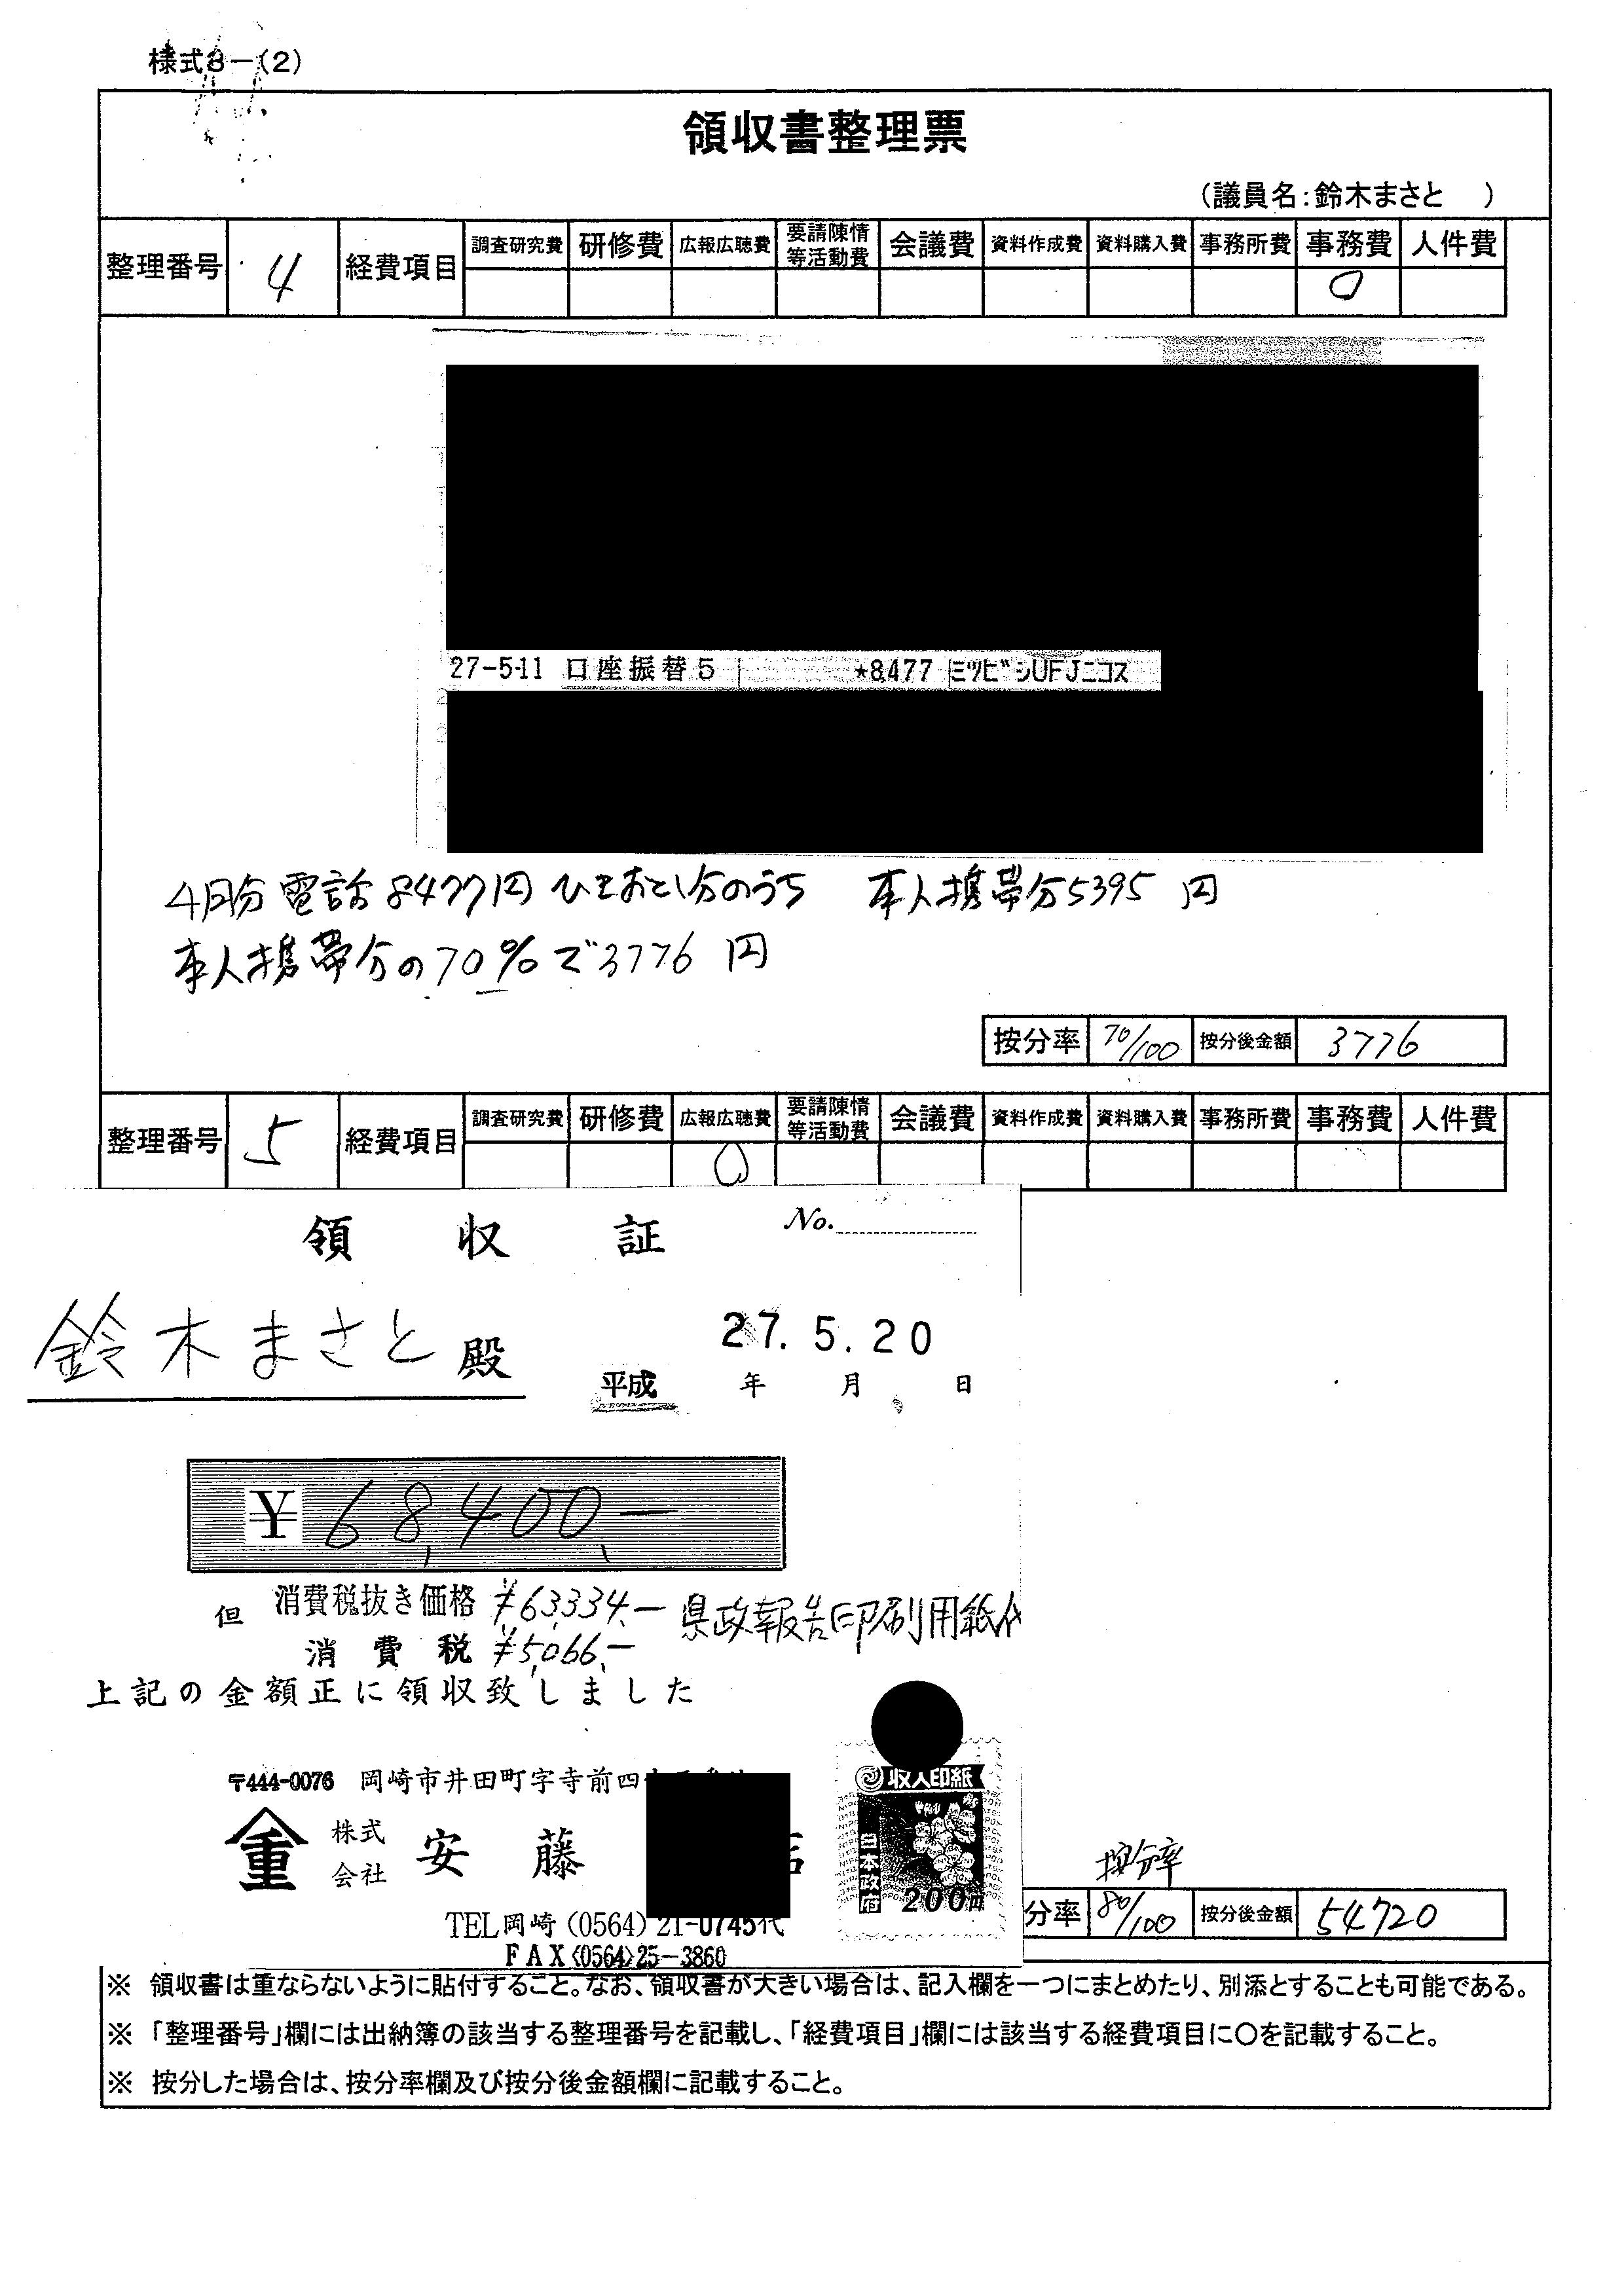 様式3－(2)
領収書整理票
(議員名:鈴木まさと )
整理番号 4 経費項目 調査研究費 研修費 広報広聴費 要請陳情等活動費 会議費 資料作成費 資料購入費 事務所費 事務費 人件費
○
27-5-11 口座振替5 *8,477 ミツビシUFJニコス
4月分電話8477円ひきおとし分のうち 本人携帯分5395円
本人携帯分の70%で3776円
按分率 70/100 按分後金額 3776
整理番号 5 経費項目 調査研究費 研修費 広報広聴費 要請陳情等活動費 会議費 資料作成費 資料購入費 事務所費 事務費 人件費
○
領収証 No.
鈴木まさと殿
27.5.20
平成 年 月 日
¥68,400.-
但 消費税抜き価格 ¥63,334.- 県政報告印刷用紙代
消費税 ¥5,066.-
上記の金額正に領収致しました
〒444-0076 岡崎市井田町字寺前四
重 株式会社 安藤
収入印紙
日本政府
200円
TEL岡崎(0564)21-0745代
FAX(0564)25-3860
按分率
分率 80/100 按分後金額 54720
※ 領収書は重ならないように貼付すること。なお、領収書が大きい場合は、記入欄を一つにまとめたり、別添とすることも可能である。
※ 「整理番号」欄には出納簿の該当する整理番号を記載し、「経費項目」欄には該当する経費項目に○を記載すること。
※ 按分した場合は、按分率欄及び按分後金額欄に記載すること。